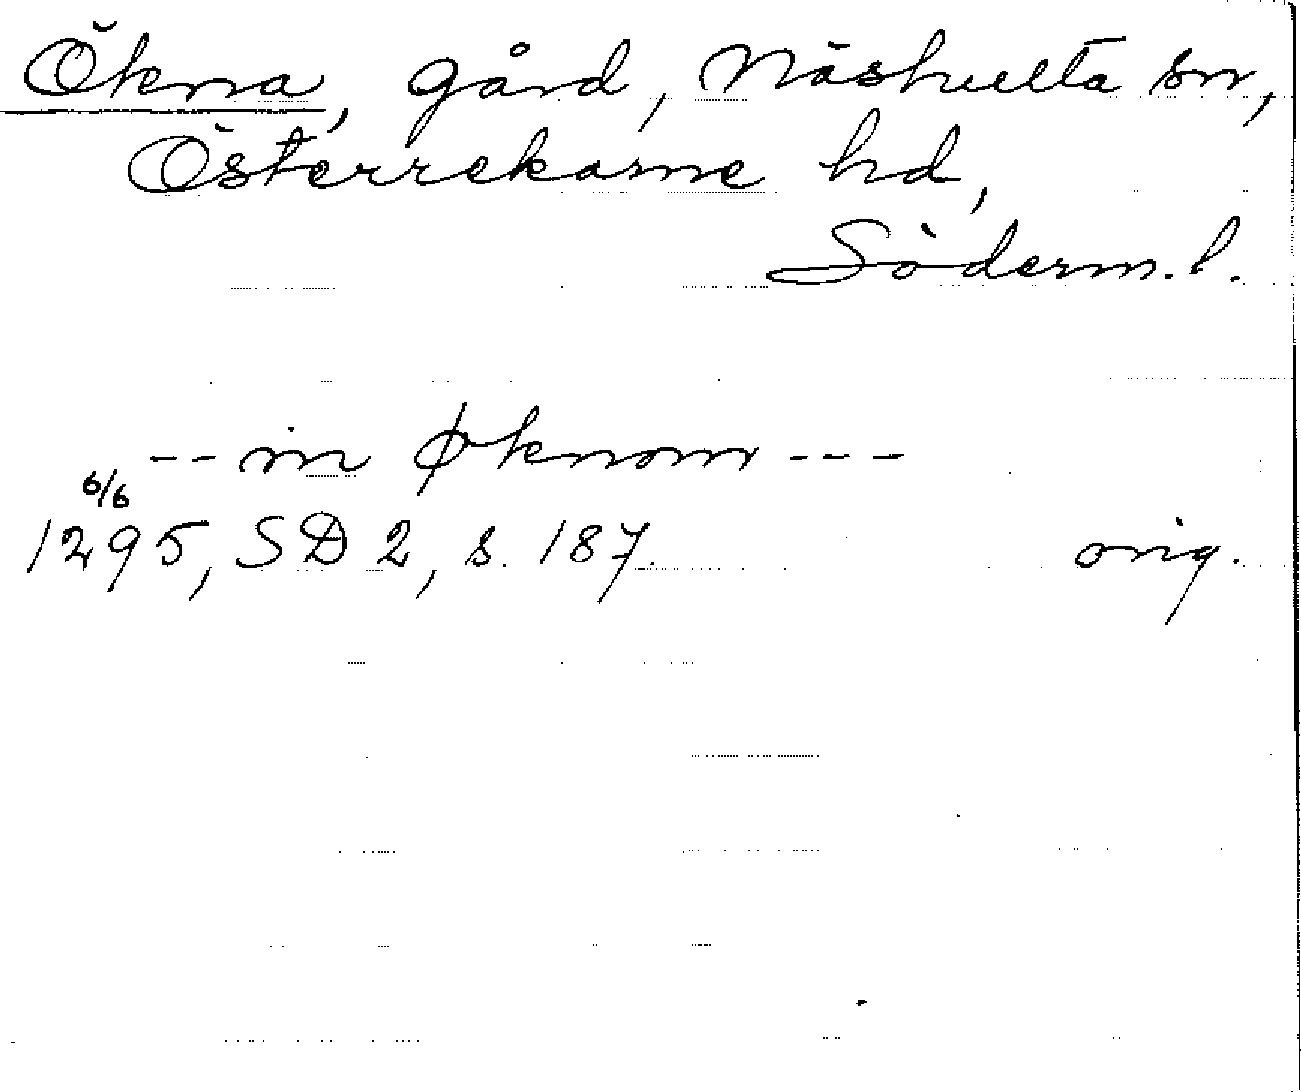 Ökna, gård, Näshulta sn,
Österrekarne hd,
Söderm.l.
-- in Øknom ---
6/6
1295, SD 2, s. 187. orig.